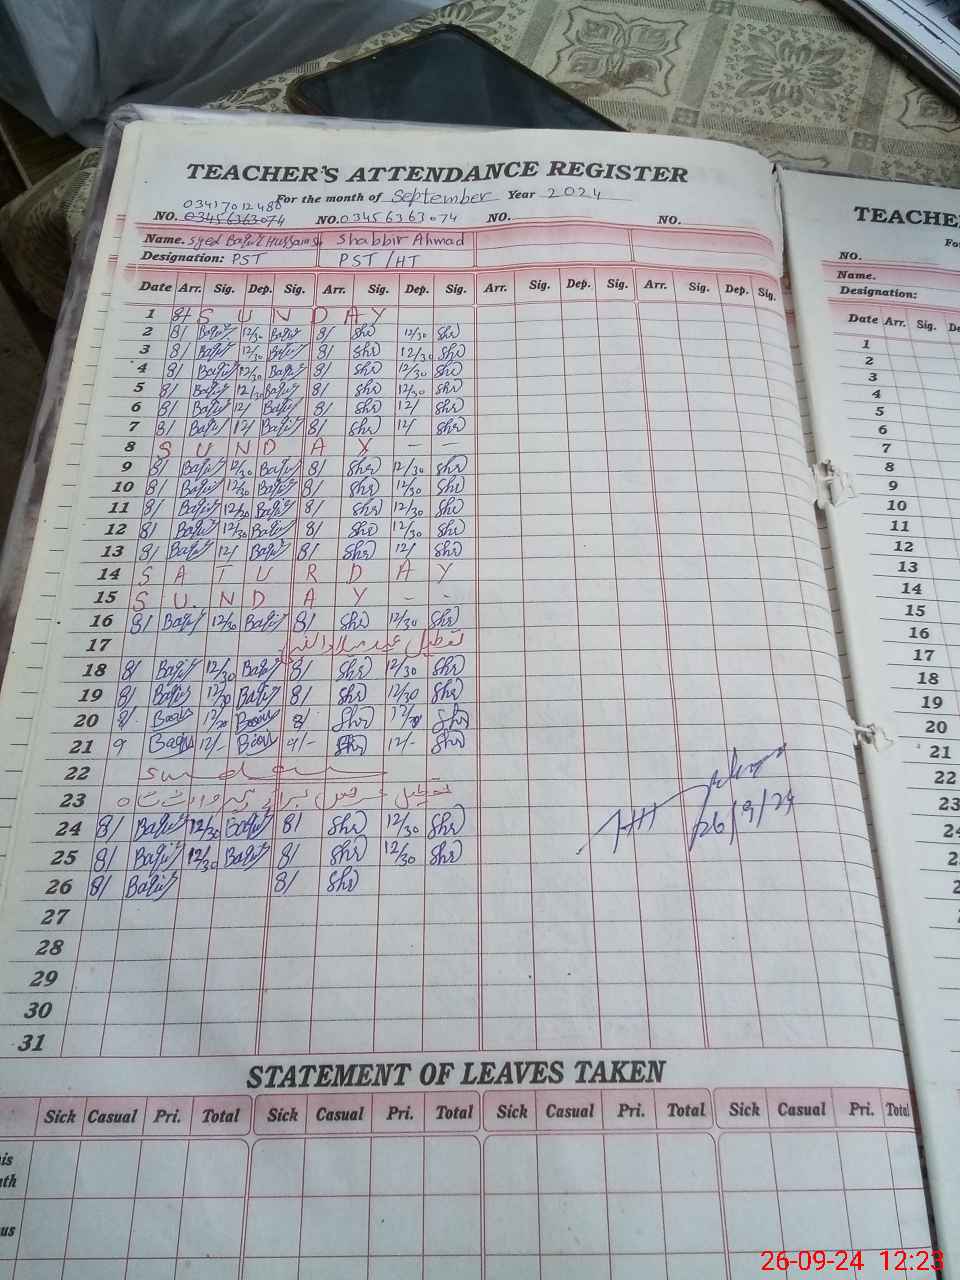 TEACHER'S ATTENDANCE REGISTER
For the month of September Year 2024
03417012486
NO. 03456363074 NO. 03456363074 NO. NO.
Name. Syed Baqir Hussain Shabbir Ahmad
Designation: PST PST/HT
Date Arr. Sig. Dep. Sig. Arr. Sig. Dep. Sig. Arr. Sig. Dep. Sig. Arr. Sig. Dep. Sig.
1 S U N D A Y
2 8/ Baqir 12/30 Baqir 8/ Shr 12/30 Shr
3 8/ Baqir 12/30 Baqir 8/ Shr 12/30 Shr
4 8/ Baqir 12/30 Baqir 8/ Shr 12/30 Shr
5 8/ Baqir 12/30 Baqir 8/ Shr 12/30 Shr
6 8/ Baqir 12/ Baqir 8/ Shr 12/ Shr
7 8/ Baqir 12/ Baqir 8/ Shr 12/ Shr
8 S U N D A Y - -
9 8/ Baqir 12/30 Baqir 8/ Shr 12/30 Shr
10 8/ Baqir 12/30 Baqir 8/ Shr 12/30 Shr
11 8/ Baqir 12/30 Baqir 8/ Shr 12/30 Shr
12 8/ Baqir 12/30 Baqir 8/ Shr 12/30 Shr
13 8/ Baqir 12/ Baqir 8/ Shr 12/ Shr
14 S A T U R D A Y
15 S U N D A Y - -
16 8/ Baqir 12/30 Baqir 8/ Shr 12/30 Shr
17 تعطیل عید میلاد النبی
18 8/ Baqir 12/30 Baqir 8/ Shr 12/30 Shr
19 8/ Baqir 12/30 Baqir 8/ Shr 12/30 Shr
20 8/ Baqir 12/30 Baqir 8/ Shr 12/30 Shr
21 9 Baqir 12/- Baqir 9/- Shr 12/- Shr
22 Sunday
23 تعطیل عرس
24 8/ Baqir 12/30 Baqir 8/ Shr 12/30 Shr
25 8/ Baqir 12/30 Baqir 8/ Shr 12/30 Shr
26 8/ Baqir 8/ Shr
26/9/24
27
28
29
30
31
STATEMENT OF LEAVES TAKEN
Sick Casual Pri. Total Sick Casual Pri. Total Sick Casual Pri. Total Sick Casual Pri. Total
TEACHE
NO.
Name.
Designation:
Date Arr. Sig. De
1
2
3
4
5
6
7
8
9
10
11
12
13
14
15
16
17
18
19
20
21
22
23
24
26-09-24 12:23